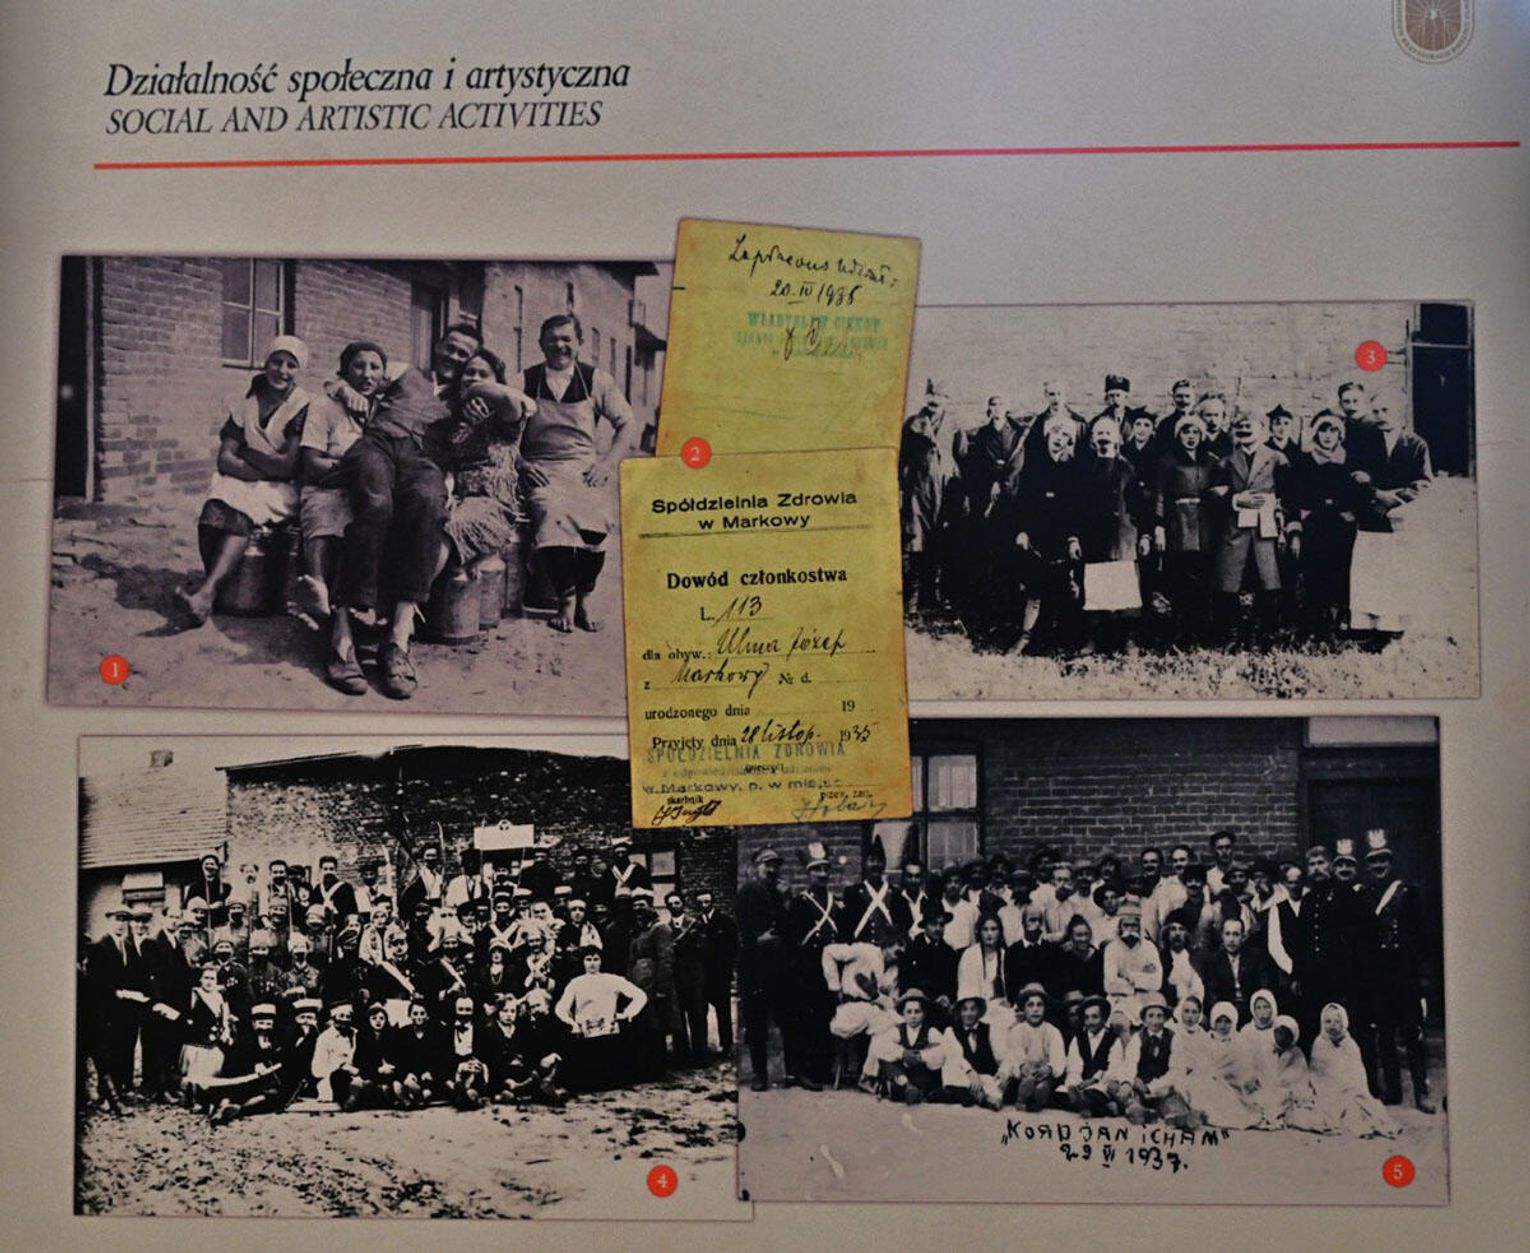 Działalność społeczna i artystyczna
SOCIAL AND ARTISTIC ACTIVITIES
20 IV 1938
WŁADYSŁAW CIEKOT
1
2
3
Spółdzielnia Zdrowia
w Markowy
Dowód członkostwa
L. 113
dla obyw.: Ulma Józef
z Markowy № d.
urodzonego dnia 19
Przyjęty dnia 28 listop. 1935
SPÓŁDZIELNIA ZDROWIA
w Markowy, p. w miejsc
skarbnik
przew. zarz.
4
„KORDJAN i CHAM"
29 VI 1937.
5